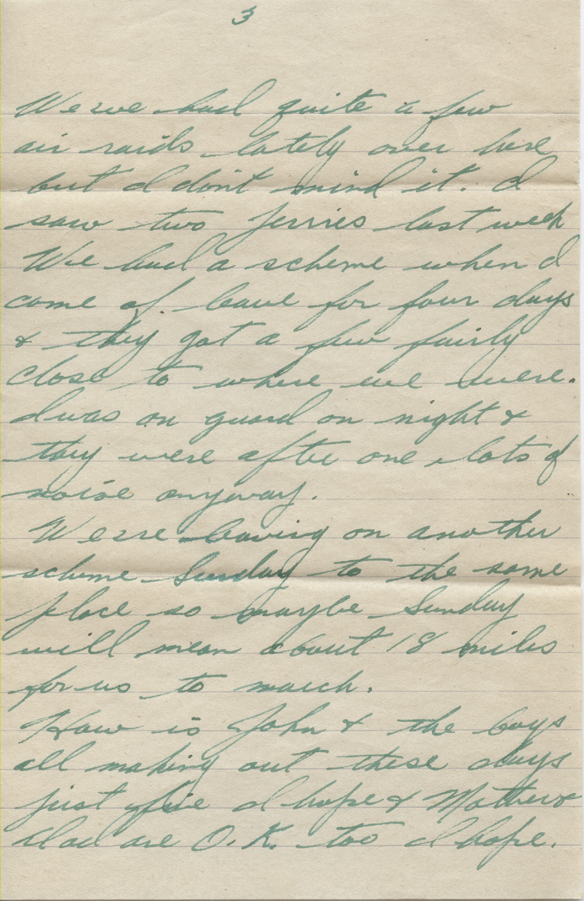 3
We've had quite a few
air raids lately over here
but I don't mind it. I
saw two Jerries last week
We had a scheme when I
come of leave for four days
& they got a few fairly
close to where we were.
I was on guard on night &
they were after one lots of
noise anyway.
We're leaving on another
scheme Sunday to the same
place so maybe Sunday
will mean about 18 miles
for us to march.
How is John & the boys
all making out these days
just fine I hope & Mother &
Dad are O.K. too I hope.